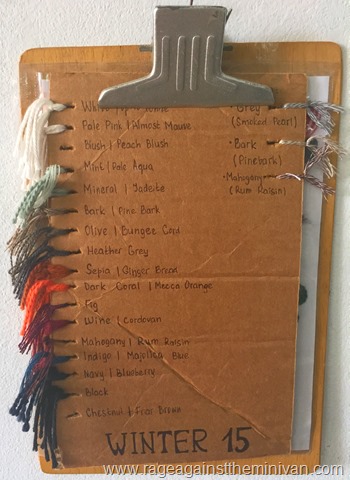 White
Pale Pink | Almost Mauve
Blush | Peach Blush
Mint | Pale Aqua
Mineral | Jadeite
Bark | Pine Bark
Olive | Bungee Cord
Heather Grey
Sepia | Ginger Bread
Dark Coral | Mecca Orange
Fig
Wine | Cordovan
Mahogany | Rum Raisin
Indigo | Majolica Blue
Navy | Blueberry
Black
Chestnut | Friar Brown
• Grey
(Smoked Pearl)
• Bark
(Pinebark)
• Mahogany
(Rum Raisin)
WINTER 15
www.rageagainsttheminivan.com